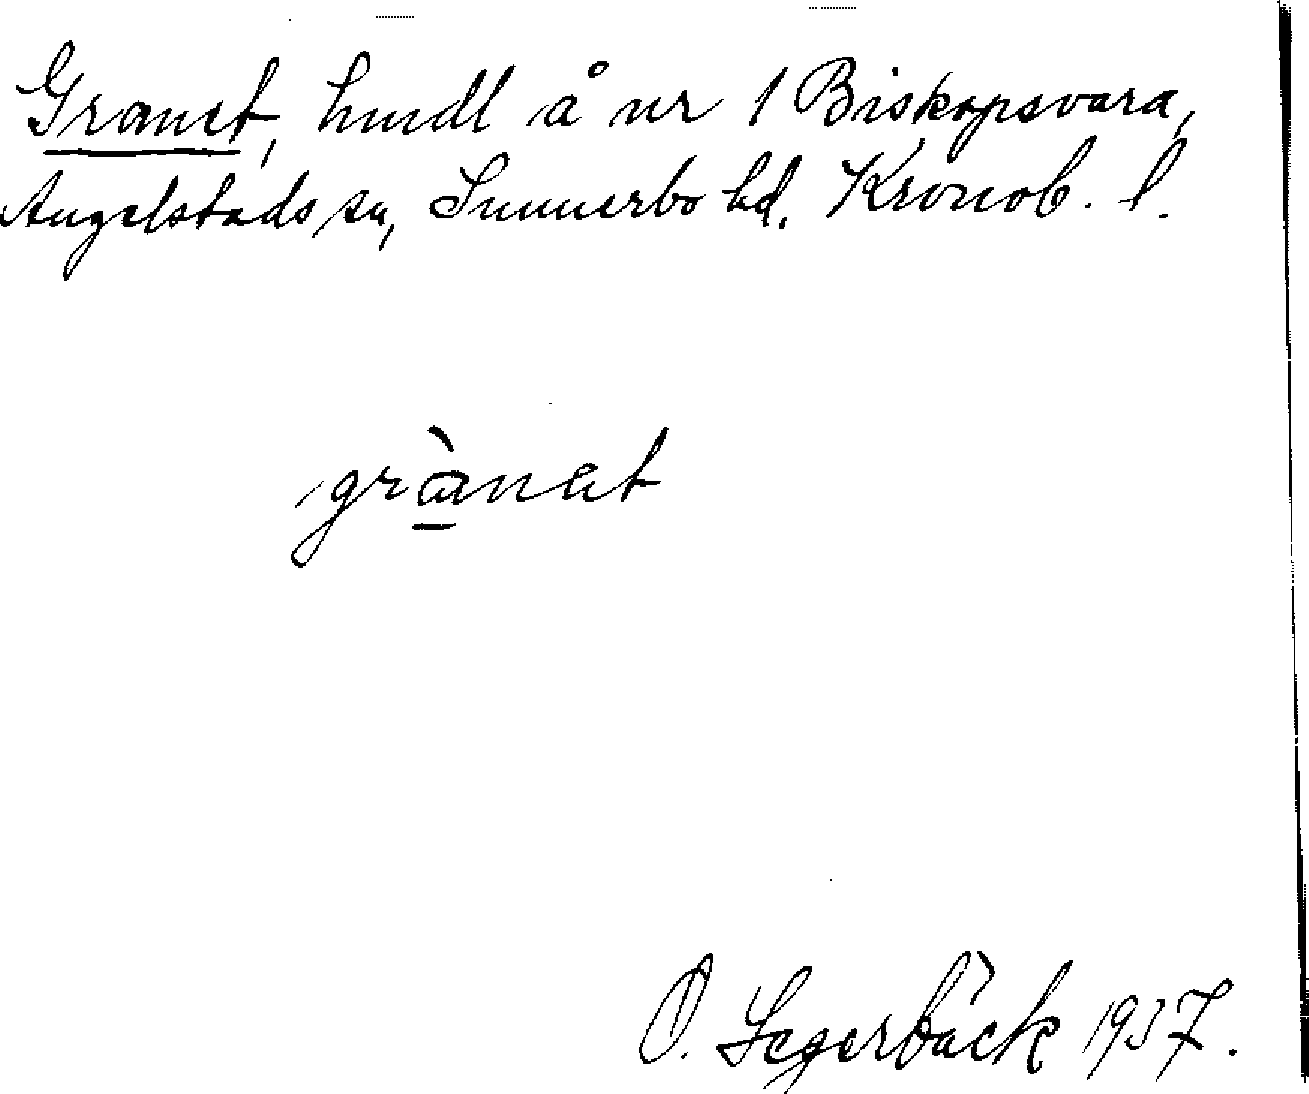 Granet, hmdl å nr 1 Biskopsvara,
Angelstads sn, Sunnerbo hd. Kronob. l.
grànat
O. Segerbäck 1937.